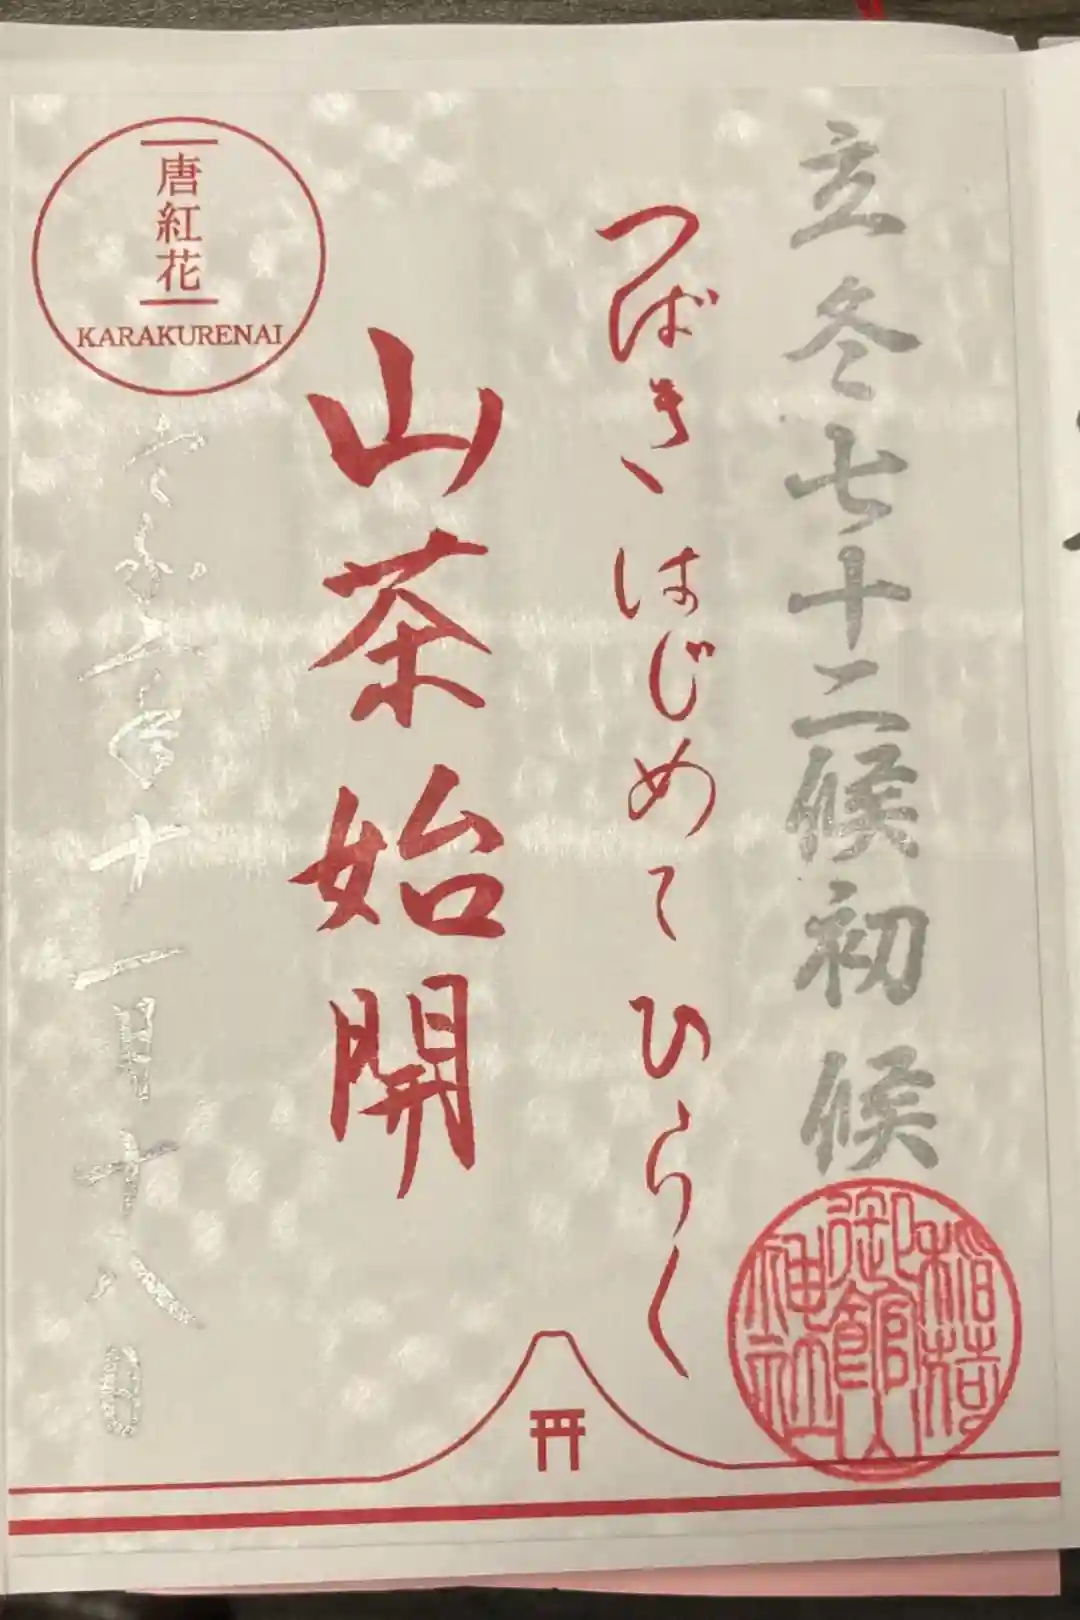 立冬七十二候初候
つばき はじめて ひらく
山茶始開
唐紅花
KARAKURENAI
令和六年十一月十八日
稲荷
御館山
神社